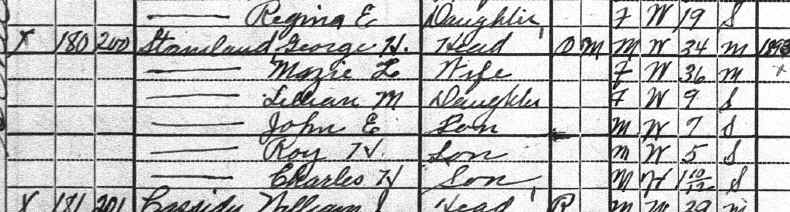 —— Regina E Daughter F W 19 S
X 180 200 Staneland George H. Head O M M W 34 M 1893
—— Mazie L Wife F W 36 M
—— Lillian M Daughter F W 9 S
—— John E Son M W 7 S
—— Roy H Son M W 5 S
—— Charles H Son M W 1 10/12 S
X 181 201 Cassidy William J Head R M W 39 M